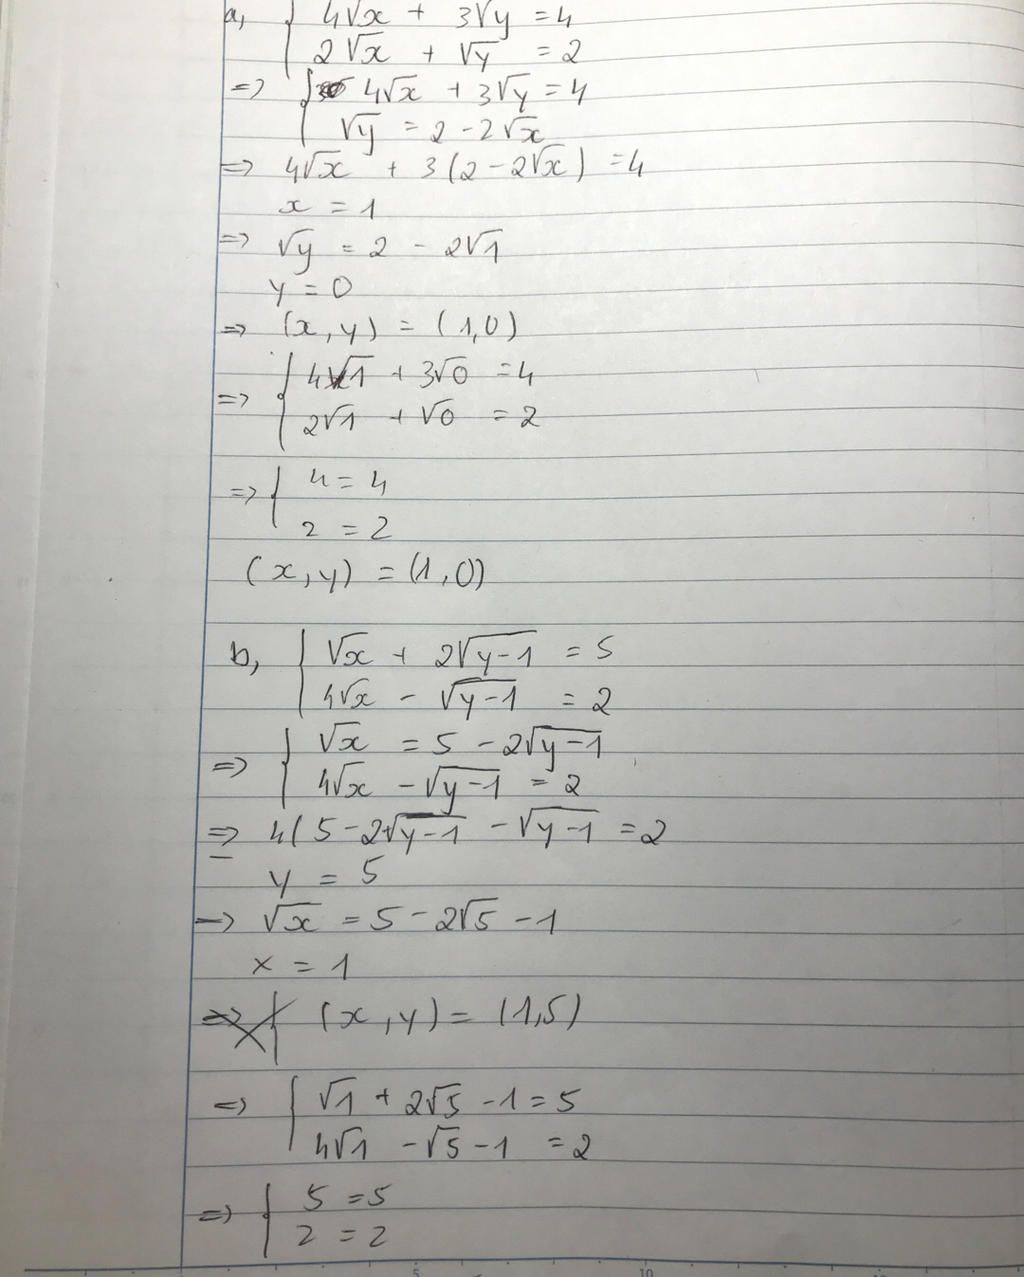 a, { 4√x + 3√y = 4
2√x + √y = 2
=> { 4√x + 3√y = 4
√y = 2 - 2√x
=> 4√x + 3(2 - 2√x) = 4
x = 1
=> √y = 2 - 2√1
y = 0
=> (x, y) = (1,0)
=> { 4√1 + 3√0 = 4
2√1 + √0 = 2
=> { 4 = 4
2 = 2
(x, y) = (1, 0)
b, { √x + 2√(y-1) = 5
4√x - √(y-1) = 2
=> { √x = 5 - 2√(y-1)
4√x - √(y-1) = 2
=> 4(5 - 2√(y-1) - √(y-1) = 2
y = 5
-> √x = 5 - 2√5 - 1
x = 1
=> { (x, y) = (1,5)
=> { √1 + 2√5 - 1 = 5
4√1 - √5 - 1 = 2
=> { 5 = 5
2 = 2
5 10